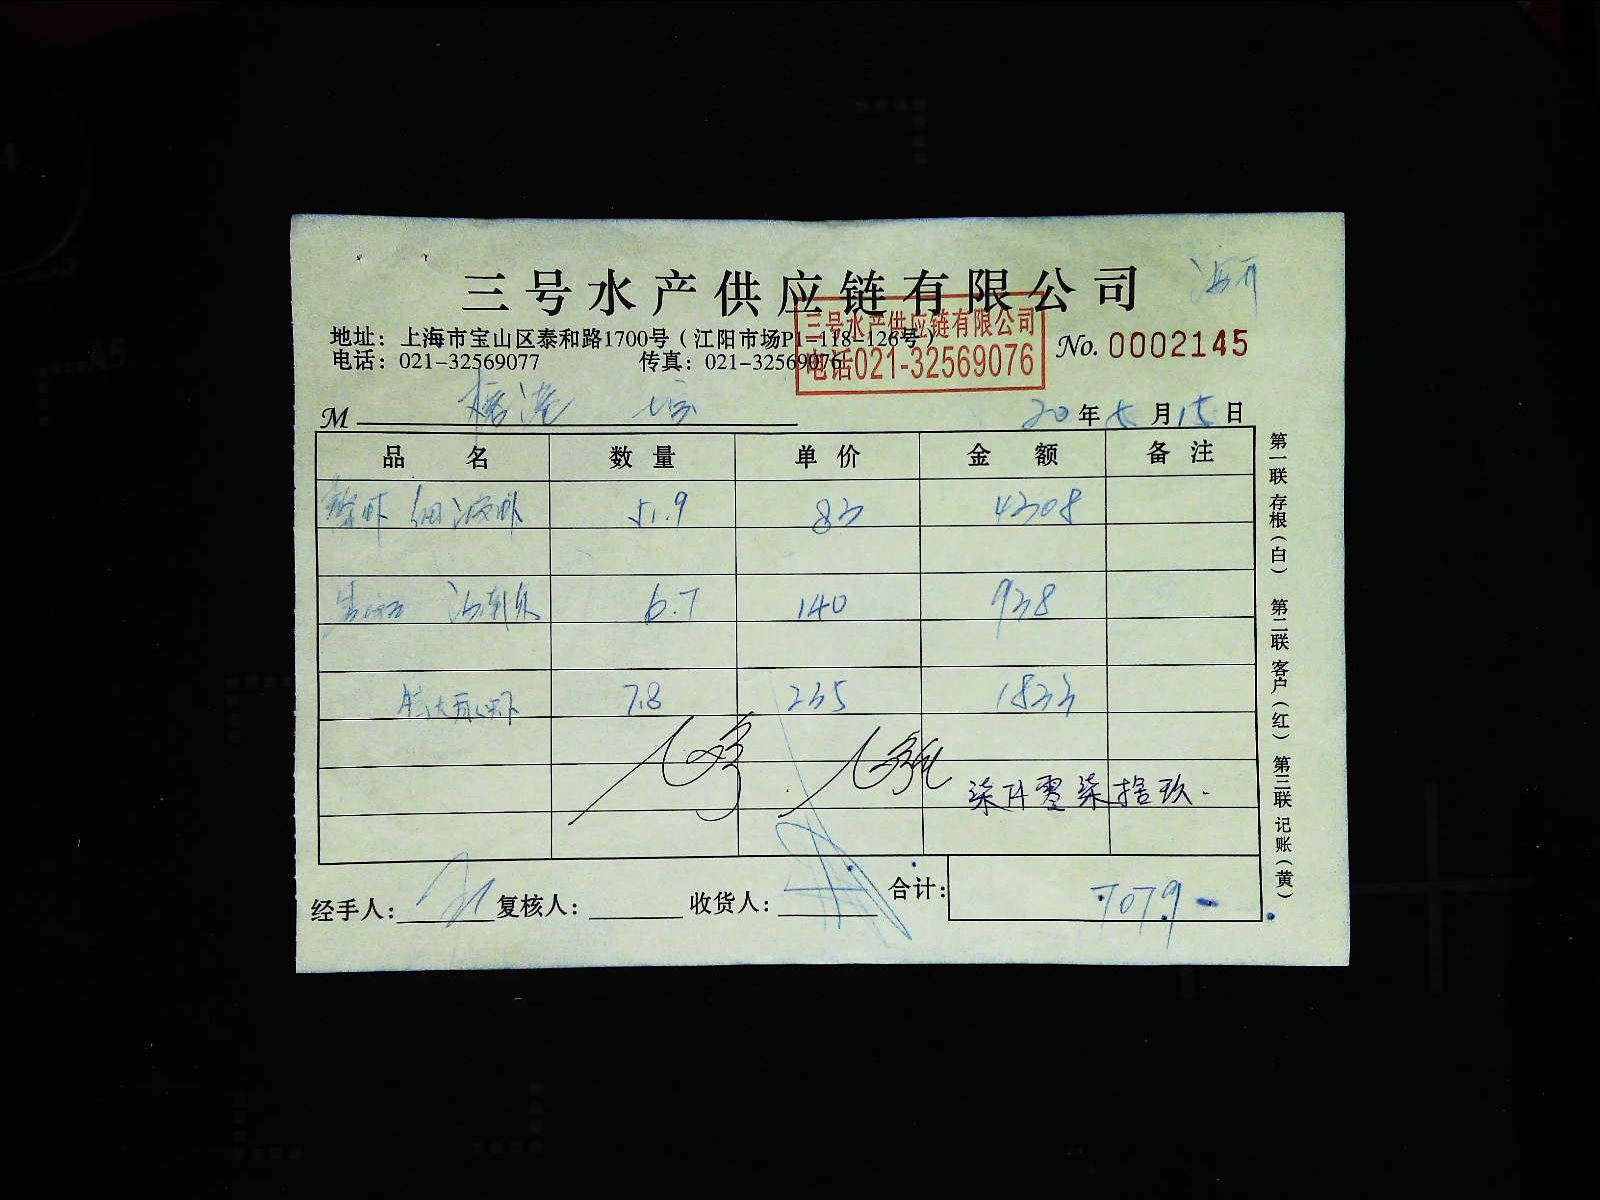 三号水产供应链有限公司
地址：上海市宝山区泰和路1700号（江阳市场P1-118-126号）
三号水产供应链有限公司
电话：021-32569077 传真：021-32569076
电话021-32569076
No. 0002145
M
20年5月15日
品名 数量 单价 金额 备注
51.9 83 4308
6.7 140 938
7.8 235 1833
柒仟零柒拾玖
经手人： 复核人： 收货人： 合计： 7079-
第一联 存根（白） 第二联 客户（红） 第三联 记账（黄）